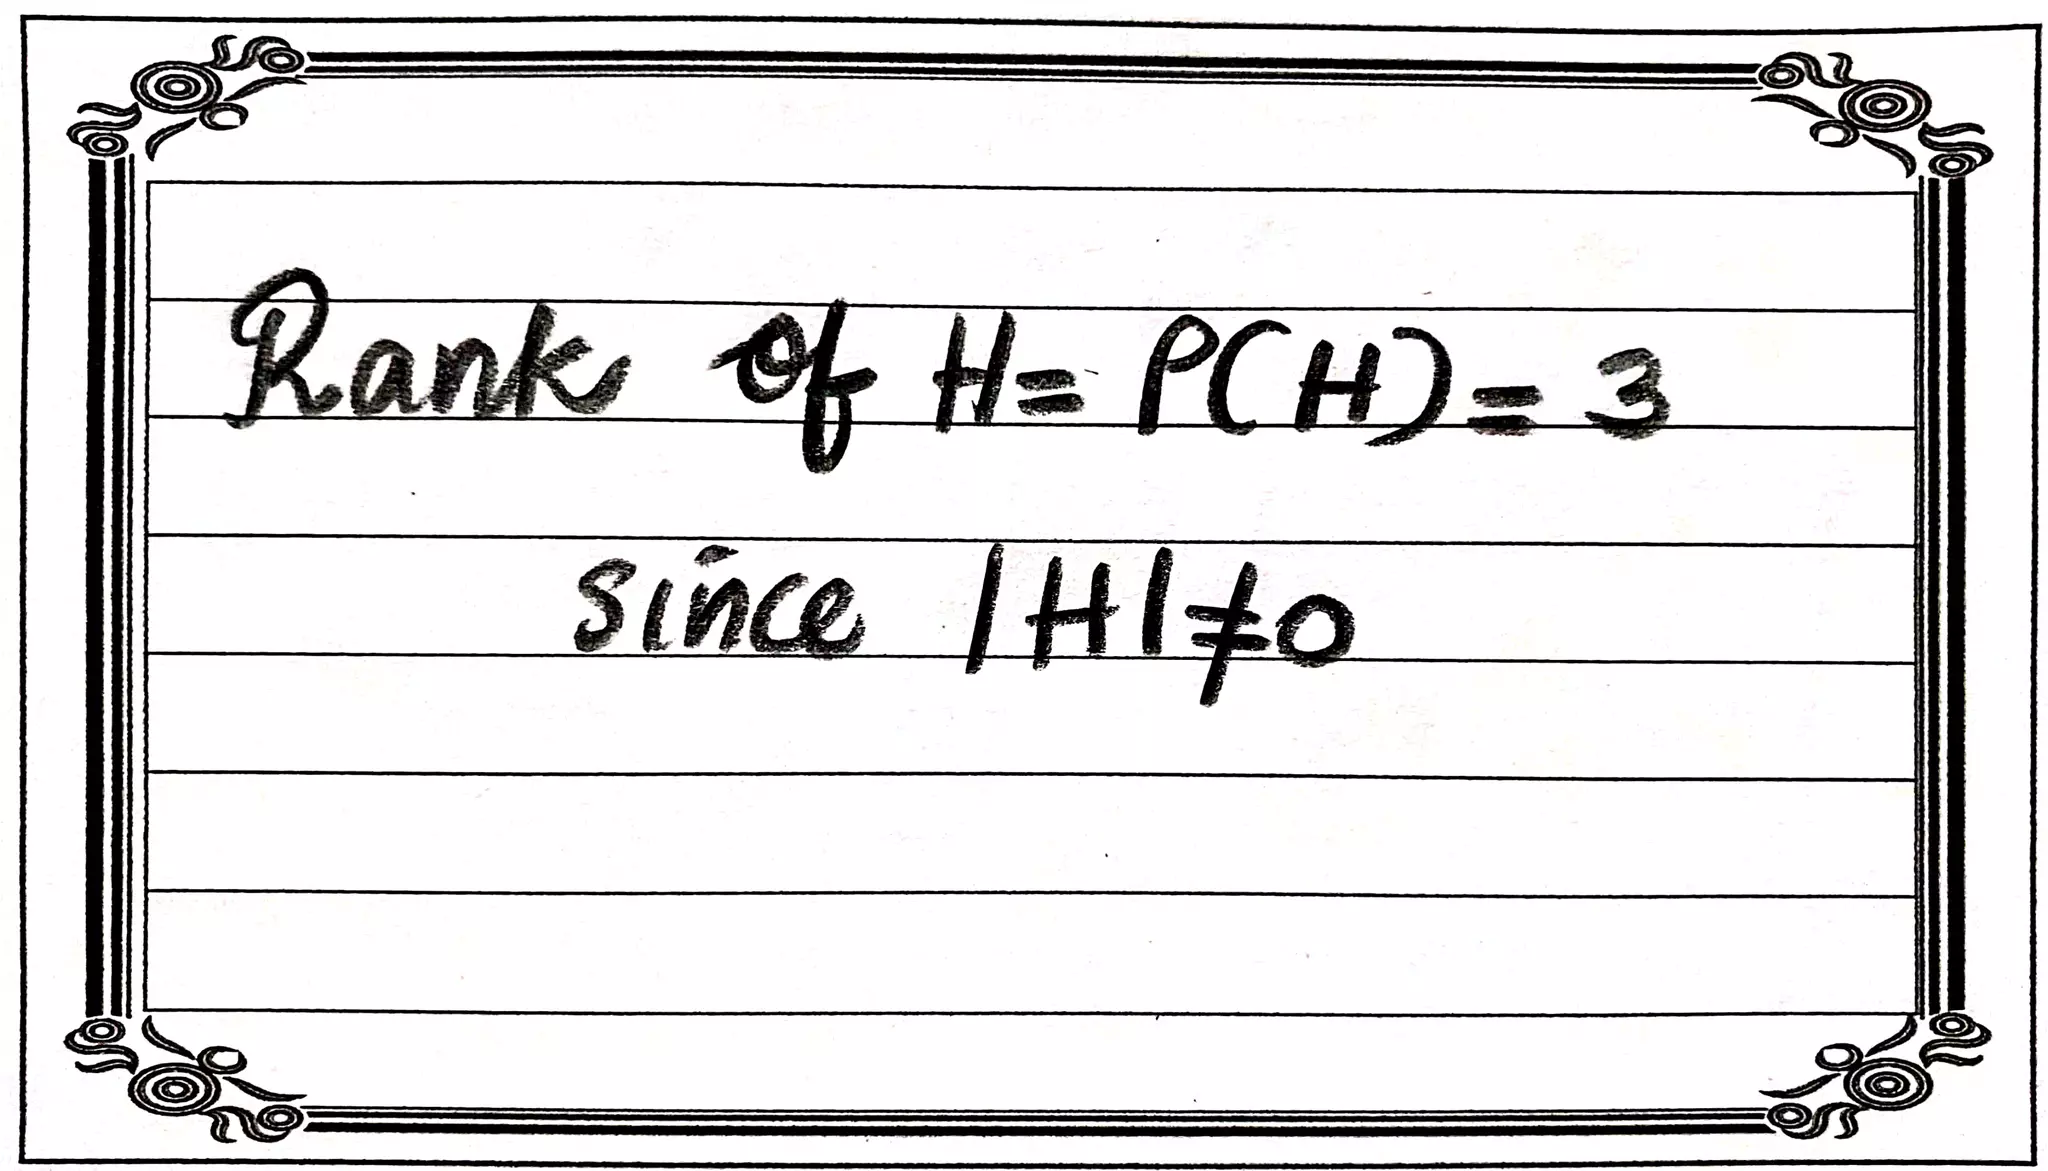 Rank of H = P(H) = 3
since |H| ≠ 0